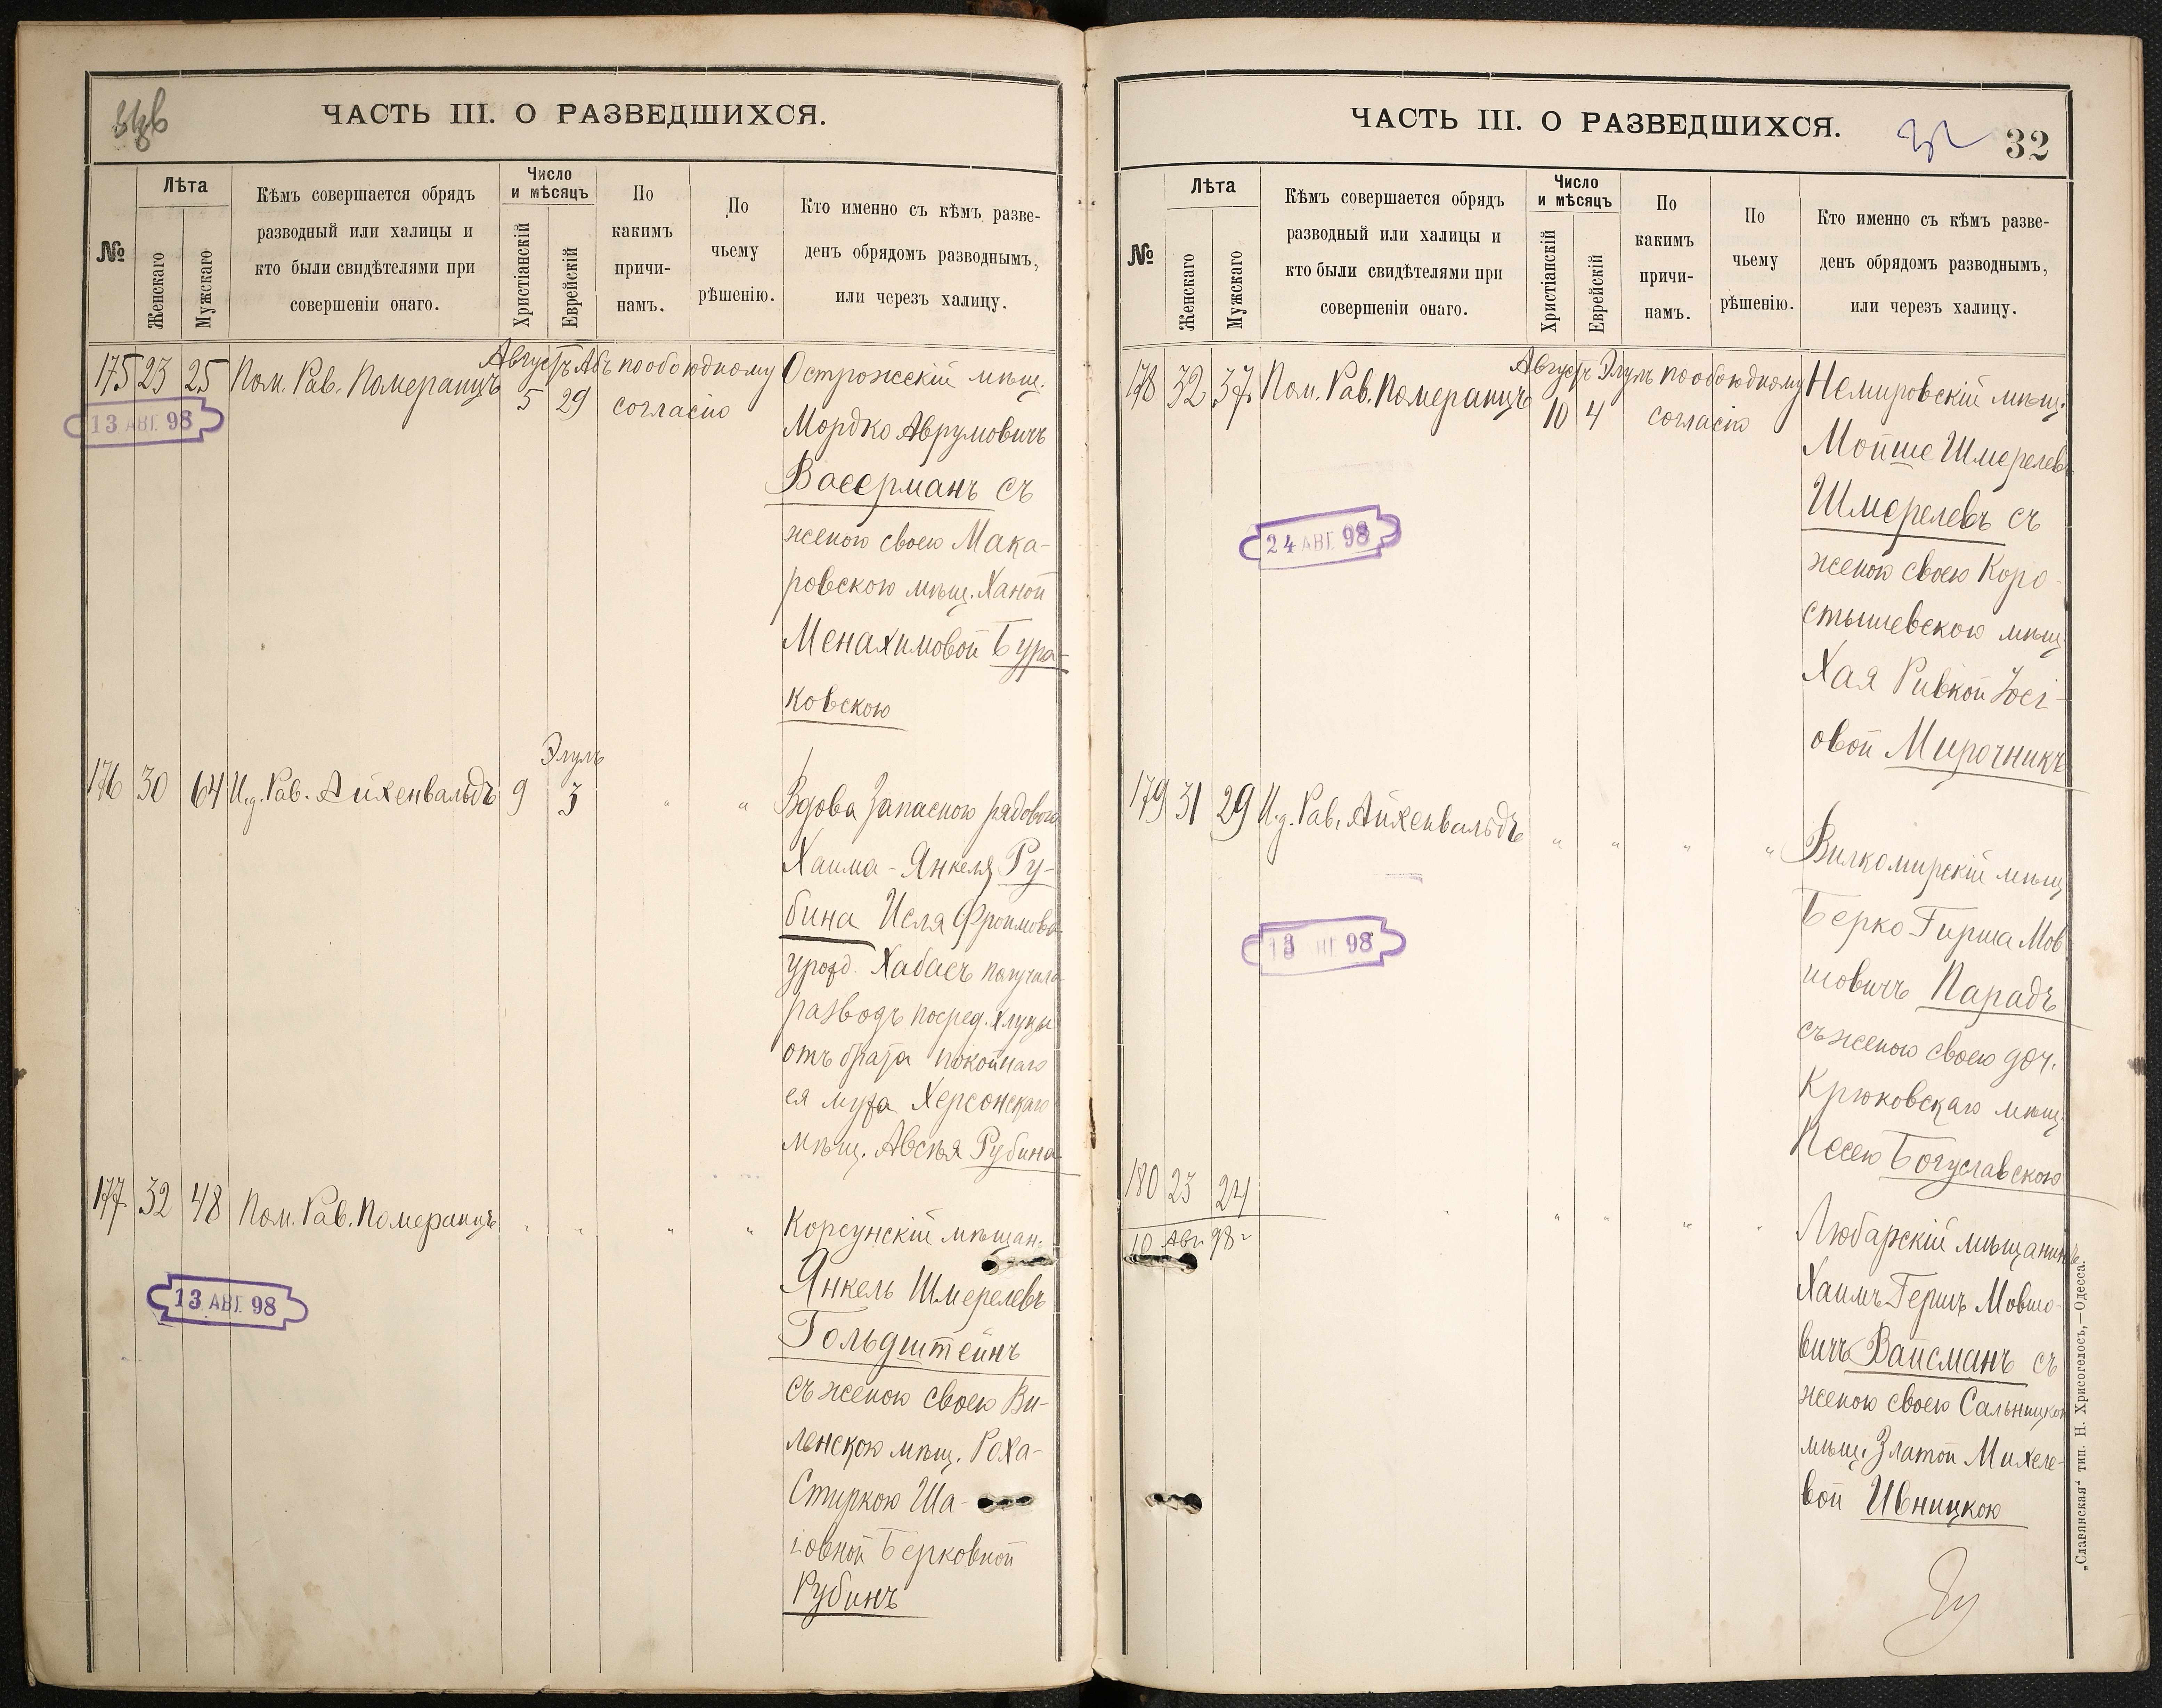 ЧАСТЬ III. О РАЗВЕДШИХСЯ.
№
Лѣта
Женскаго
Мужскаго
Кѣмъ совершается обрядъ
разводный или халицы и
кто были свидѣтелями при
совершеніи онаго.
Число
и мѣсяцъ
Христіанскій
Еврейскій
По
какимъ
причи-
намъ.
По
чьему
рѣшенію.
Кто именно съ кѣмъ разве-
денъ обрядомъ разводнымъ,
или черезъ халицу.
175 23 25 Пом. Рав. Померанцъ Августъ 5 Абъ 29 по обоюдному
согласію
13 АВГ. 98
Острожскій мѣщ.
Мордко Аврумовичъ
Васерманъ съ
женою своею Мака-
ровскою мѣщ. Ханой
Менахимовой Бура-
ковскою
176 30 64 И.д. Рав. Айхенвальдъ 9 Элулъ 3 " "
Вдова запасного рядового
Хаима-Янкеля Ру-
бина Исля Фроимова
урожд. Хабасъ получила
разводъ посред. хлуцы
отъ брата покойнаго
ея мужа Херсонскаго
мѣщ. Авсѣя Рубина
177 32 48 Пом. Рав. Померанцъ " " " "
13 АВГ. 98
Корсунскій мѣщан.
Янкель Шмерелевъ
Гольдштейнъ
съ женою своею Ви-
ленскою мѣщ. Роха-
Стиркою Ша-
іовной Берковной
Рубинъ
ЧАСТЬ III. О РАЗВЕДШИХСЯ.
32 32
№
Лѣта
Женскаго
Мужскаго
Кѣмъ совершается обрядъ
разводный или халицы и
кто были свидѣтелями при
совершеніи онаго.
Число
и мѣсяцъ
Христіанскій
Еврейскій
По
какимъ
причи-
намъ.
По
чьему
рѣшенію.
Кто именно съ кѣмъ разве-
денъ обрядомъ разводнымъ,
или черезъ халицу.
178 32 37 Пом. Рав. Померанцъ Августъ 10 Элулъ 4 по обоюдному
согласію
24 АВГ. 98
Немировскій мѣщ.
Мойше Шмерелев
Шмерелевъ съ
женою своею Коро-
стышевскою мѣщ.
Хая Ривкой Іосі-
овой Мирочникъ
179 31 29 И.д. Рав. Айхенвальдъ " " " "
13 98
Вилкомирскій мѣщ
Берко Гирша Мов
шовичъ Парадъ
съ женою своею доч.
Крюковскаго мѣщ.
Песею Богуславскою
180 23 24 " " " " "
10 Авг. 98 г
Любарскій мѣщанинъ
Хаимъ Гершъ Мовшо-
вичъ Вайсманъ съ
женою своею Сальницкой
мѣщ. Златой Михеле-
вой Ивницкою
„Славянская“ тип. Н. Хрисогелосъ,—Одесса.